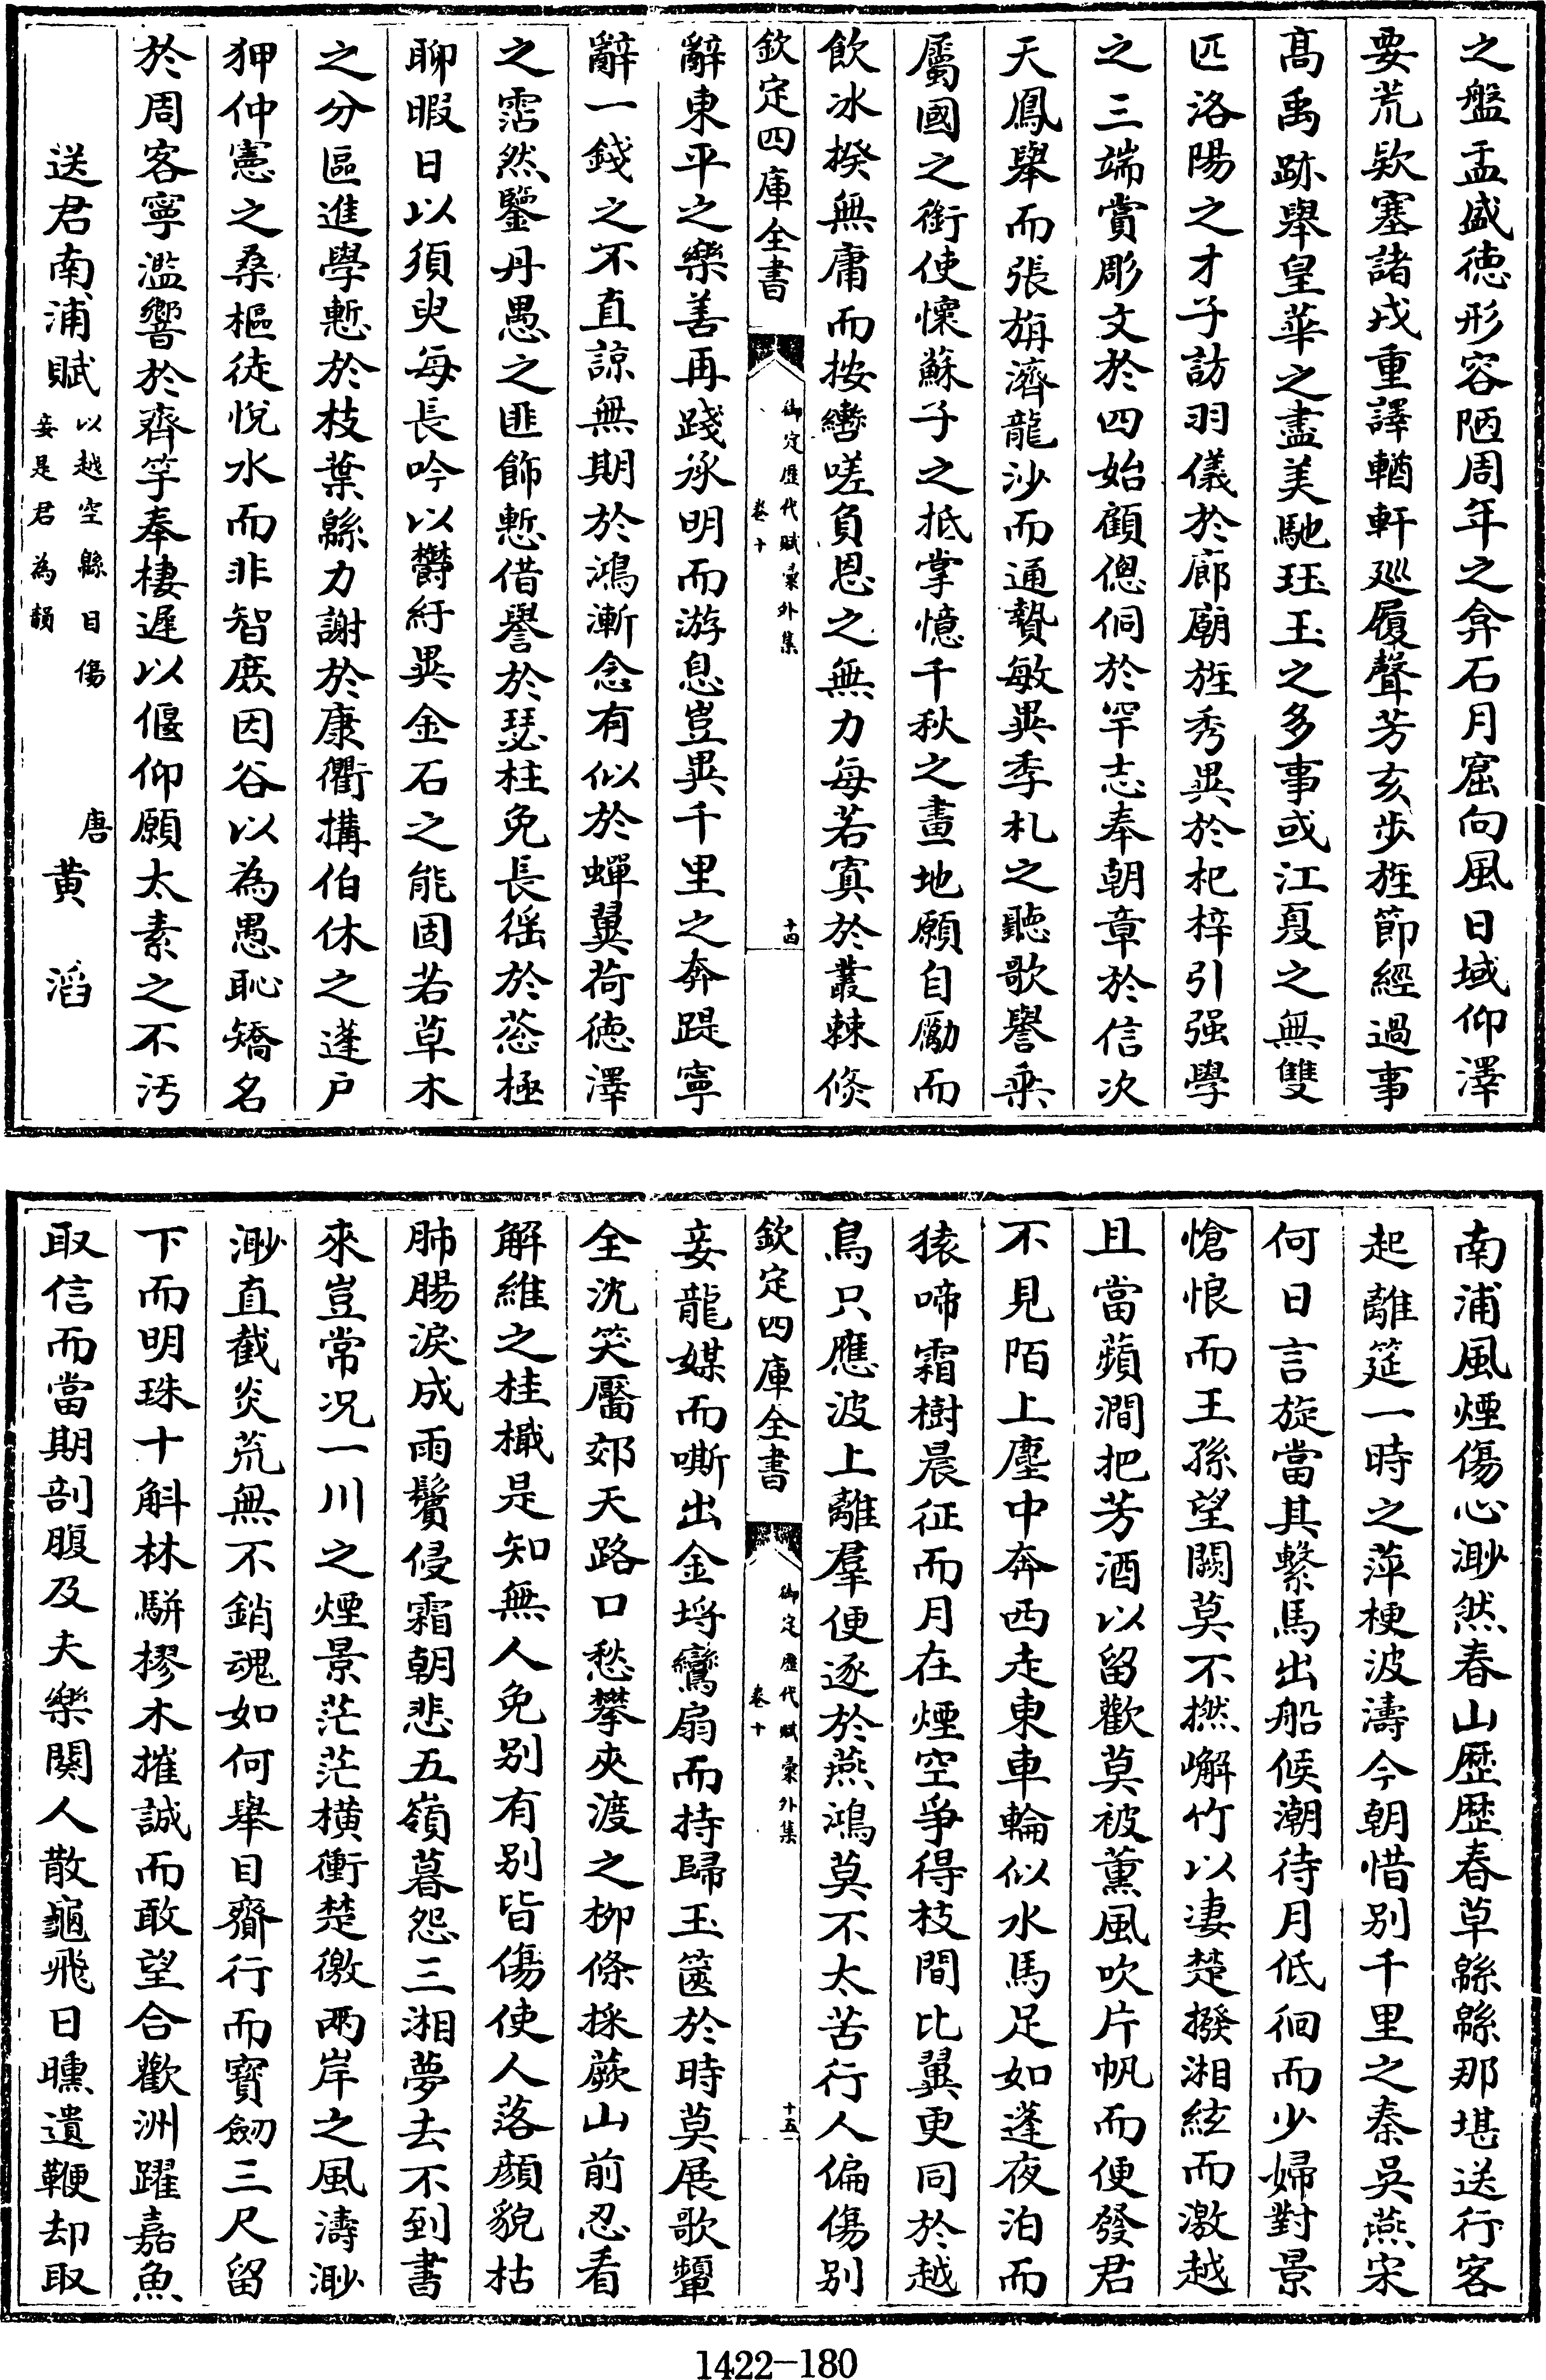 之盤盂盛徳形容陋周年之弇石月窟向風日域仰澤
要荒欵塞諸戎重譯輶軒廵履聲芳亥歩旌節經過事
髙禹跡舉皇華之盡美馳珏玉之多事或江夏之無雙
匹洛陽之才子訪羽儀於廊廟旌秀異於杞梓引强學
之三端賞彫文於四始顧傯侗於罕志奉朝章於信次
天鳳舉而張旃濟龍沙而通贄敏異季札之聽歌譽乘
屬國之銜使懷蘇子之抵掌憶千秋之畫地願自勵而
飲冰揆無庸而按轡嗟負恩之無力每若寘於叢棘倐
欽定四庫全書
御定歷代賦彙外集
卷十
十四
辭東平之樂善再踐承明而游息豈異千里之奔踶寧
辭一錢之不直諒無期於鴻漸念有似於蟬翼荷徳澤
之霑然鑒丹愚之匪飾慙借譽於瑟柱免長徭於蒸極
聊暇日以須臾每長吟以欝紆異金石之能固若草木
之分區進學慙於枝葉緜力謝於康衢搆伯休之蓬户
狎仲憲之桑樞徒悅水而非智庶因谷以為愚恥矯名
於周客寧濫響於齊竽奉棲遲以偃仰願太素之不汚
送君南浦賦
以越空緜目傷
妾是君為韻
唐
黄滔
南浦風煙傷心渺然春山歴歴春草緜緜那堪送行客
起離筵一時之萍梗波濤今朝惜别千里之秦吳燕宋
何日言旋當其繫馬出船候潮待月低徊而少婦對景
愴悢而王孫望闕莫不撚嶰竹以凄楚撥湘絃而激越
且當蘋澗把芳酒以留歡莫被薰風吹片帆而便發君
不見陌上塵中奔西走東車輪似水馬足如蓬夜泊而
猿啼霜樹晨征而月在煙空爭得枝間比翼更同於越
鳥只應波上離羣便逐於燕鴻莫不太苦行人偏傷别
欽定四庫全書
御定歷代賦彙外集
卷十
十五
妾龍媒而嘶出金埒鸞扇而持歸玉篋於時莫展歌顰
全沈笑靨郊天路口愁攀夾渡之栁條採蕨山前忍看
解維之桂檝是知無人免别有别皆傷使人落顔貌枯
肺腸淚成雨鬢侵霜朝悲五嶺暮怨三湘夢去不到書
來豈常况一川之煙景茫茫横衝楚徼兩岸之風濤渺
渺直截炎荒無不銷魂如何舉目齎行而寳劒三尺留
下而明珠十斛林騈樛木摧誠而敢望合歡洲躍嘉魚
取信而當期剖腹及夫樂闋人散龜飛日曛遺鞭却取
1422-180